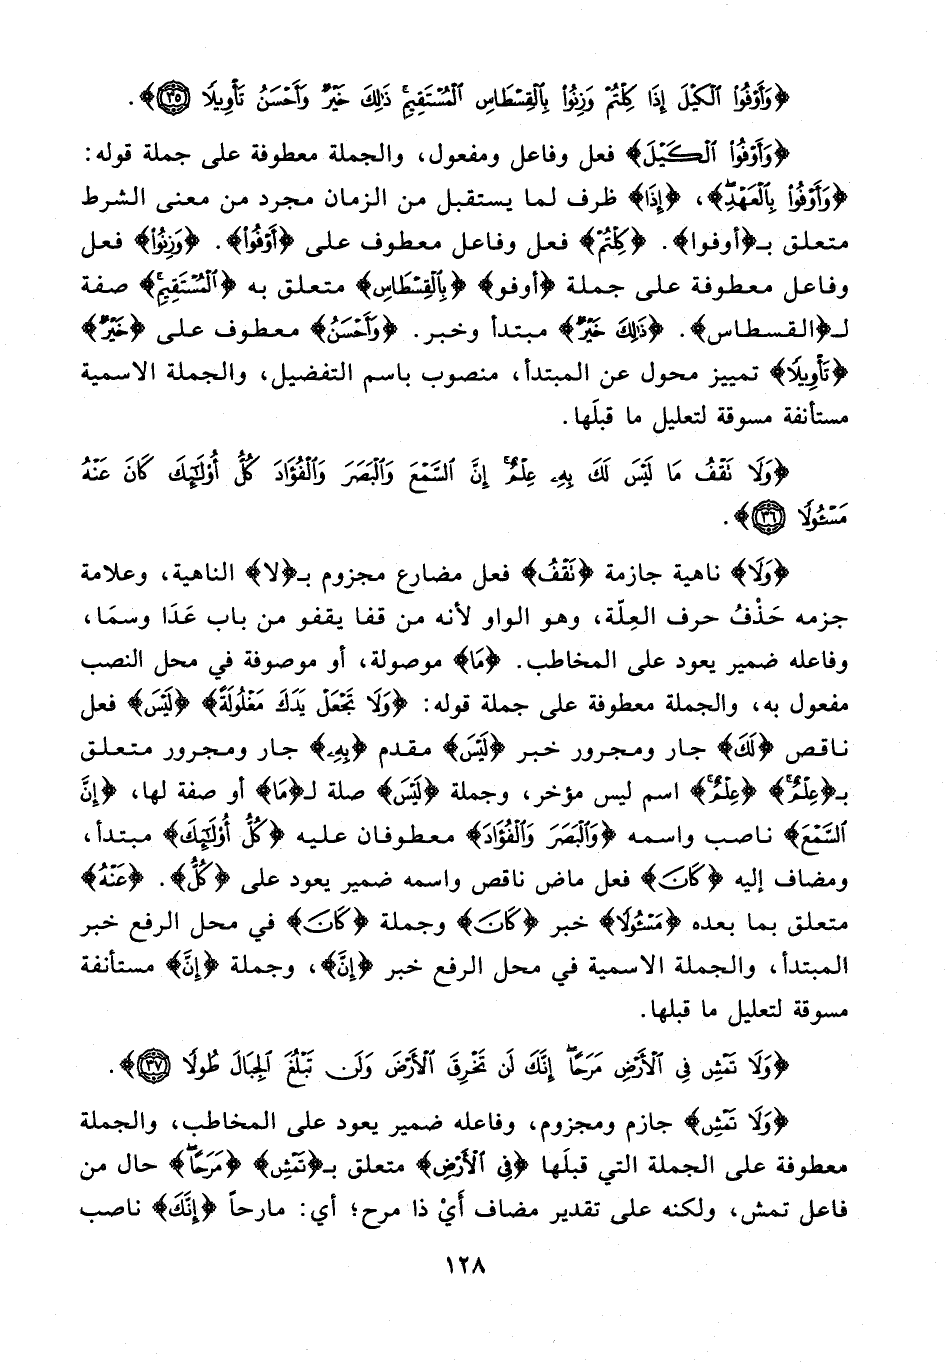 ﴿وَأَوْفُوا۟ ٱلْكَيْلَ إِذَا كِلْتُمْ وَزِنُوا۟ بِٱلْقِسْطَاسِ ٱلْمُسْتَقِيمِ ۚ ذَٰلِكَ خَيْرٌ وَأَحْسَنُ تَأْوِيلًا ﴿٣٥﴾﴾.
﴿وَأَوْفُوا۟ ٱلْكَيْلَ﴾ فعل وفاعل ومفعول، والجملة معطوفة على جملة قوله:
﴿وَأَوْفُوا۟ بِٱلْعَهْدِ ۖ﴾، ﴿إِذَا﴾ ظرف لما يستقبل من الزمان مجرد من معنى الشرط
متعلق بـ﴿أوفوا﴾. ﴿كِلْتُمْ﴾ فعل وفاعل معطوف على ﴿أَوْفُوا۟﴾. ﴿وَزِنُوا۟﴾ فعل
وفاعل معطوفة على جملة ﴿أوفو﴾ ﴿بِٱلْقِسْطَاسِ﴾ متعلق به ﴿ٱلْمُسْتَقِيمِ ۚ﴾ صفة
لـ﴿القسطاس﴾. ﴿ذَٰلِكَ خَيْرٌ﴾ مبتدأ وخبر. ﴿وَأَحْسَنُ﴾ معطوف على ﴿خَيْرٌ﴾
﴿تَأْوِيلًا﴾ تمييز محول عن المبتدأ، منصوب باسم التفضيل، والجملة الاسمية
مستأنفة مسوقة لتعليل ما قبلَها.
﴿وَلَا تَقْفُ مَا لَيْسَ لَكَ بِهِۦ عِلْمٌ ۚ إِنَّ ٱلسَّمْعَ وَٱلْبَصَرَ وَٱلْفُؤَادَ كُلُّ أُو۟لَٰٓئِكَ كَانَ عَنْهُ
مَسْـُٔولًا ﴿٣٦﴾﴾.
﴿وَلَا﴾ ناهية جازمة ﴿تَقْفُ﴾ فعل مضارع مجزوم بـ﴿لا﴾ الناهية، وعلامة
جزمه حَذْفُ حرف العِلّة، وهو الواو لأنه من قفا يقفو من باب عَدَا وسمَا،
وفاعله ضمير يعود على المخاطب. ﴿مَا﴾ موصولة، أو موصوفة في محل النصب
مفعول به، والجملة معطوفة على جملة قوله: ﴿وَلَا تَجْعَلْ يَدَكَ مَغْلُولَةً﴾ ﴿لَيْسَ﴾ فعل
ناقص ﴿لَكَ﴾ جار ومجرور خبر ﴿لَيْسَ﴾ مقدم ﴿بِهِۦ﴾ جار ومجرور متعلق
بـ﴿عِلْمٌ ۚ﴾ ﴿عِلْمٌ ۚ﴾ اسم ليس مؤخر، وجملة ﴿لَيْسَ﴾ صلة لـ﴿مَا﴾ أو صفة لها، ﴿إِنَّ
ٱلسَّمْعَ﴾ ناصب واسمه ﴿وَٱلْبَصَرَ وَٱلْفُؤَادَ﴾ معطوفان عليه ﴿كُلُّ أُو۟لَٰٓئِكَ﴾ مبتدأ،
ومضاف إليه ﴿كَانَ﴾ فعل ماض ناقص واسمه ضمير يعود على ﴿كُلُّ﴾. ﴿عَنْهُ﴾
متعلق بما بعده ﴿مَسْـُٔولًا﴾ خبر ﴿كَانَ﴾ وجملة ﴿كَانَ﴾ في محل الرفع خبر
المبتدأ، والجملة الاسمية في محل الرفع خبر ﴿إِنَّ﴾، وجملة ﴿إِنَّ﴾ مستأنفة
مسوقة لتعليل ما قبلها.
﴿وَلَا تَمْشِ فِى ٱلْأَرْضِ مَرَحًا ۖ إِنَّكَ لَن تَخْرِقَ ٱلْأَرْضَ وَلَن تَبْلُغَ ٱلْجِبَالَ طُولًا ﴿٣٧﴾﴾.
﴿وَلَا تَمْشِ﴾ جازم ومجزوم، وفاعله ضمير يعود على المخاطب، والجملة
معطوفة على الجملة التي قبلَها ﴿فِى ٱلْأَرْضِ﴾ متعلق بـ﴿تَمْشِ﴾ ﴿مَرَحًا ۖ﴾ حال من
فاعل تمش، ولكنه على تقدير مضاف أيْ ذا مرح؛ أي: مارحاً ﴿إِنَّكَ﴾ ناصب
١٢٨